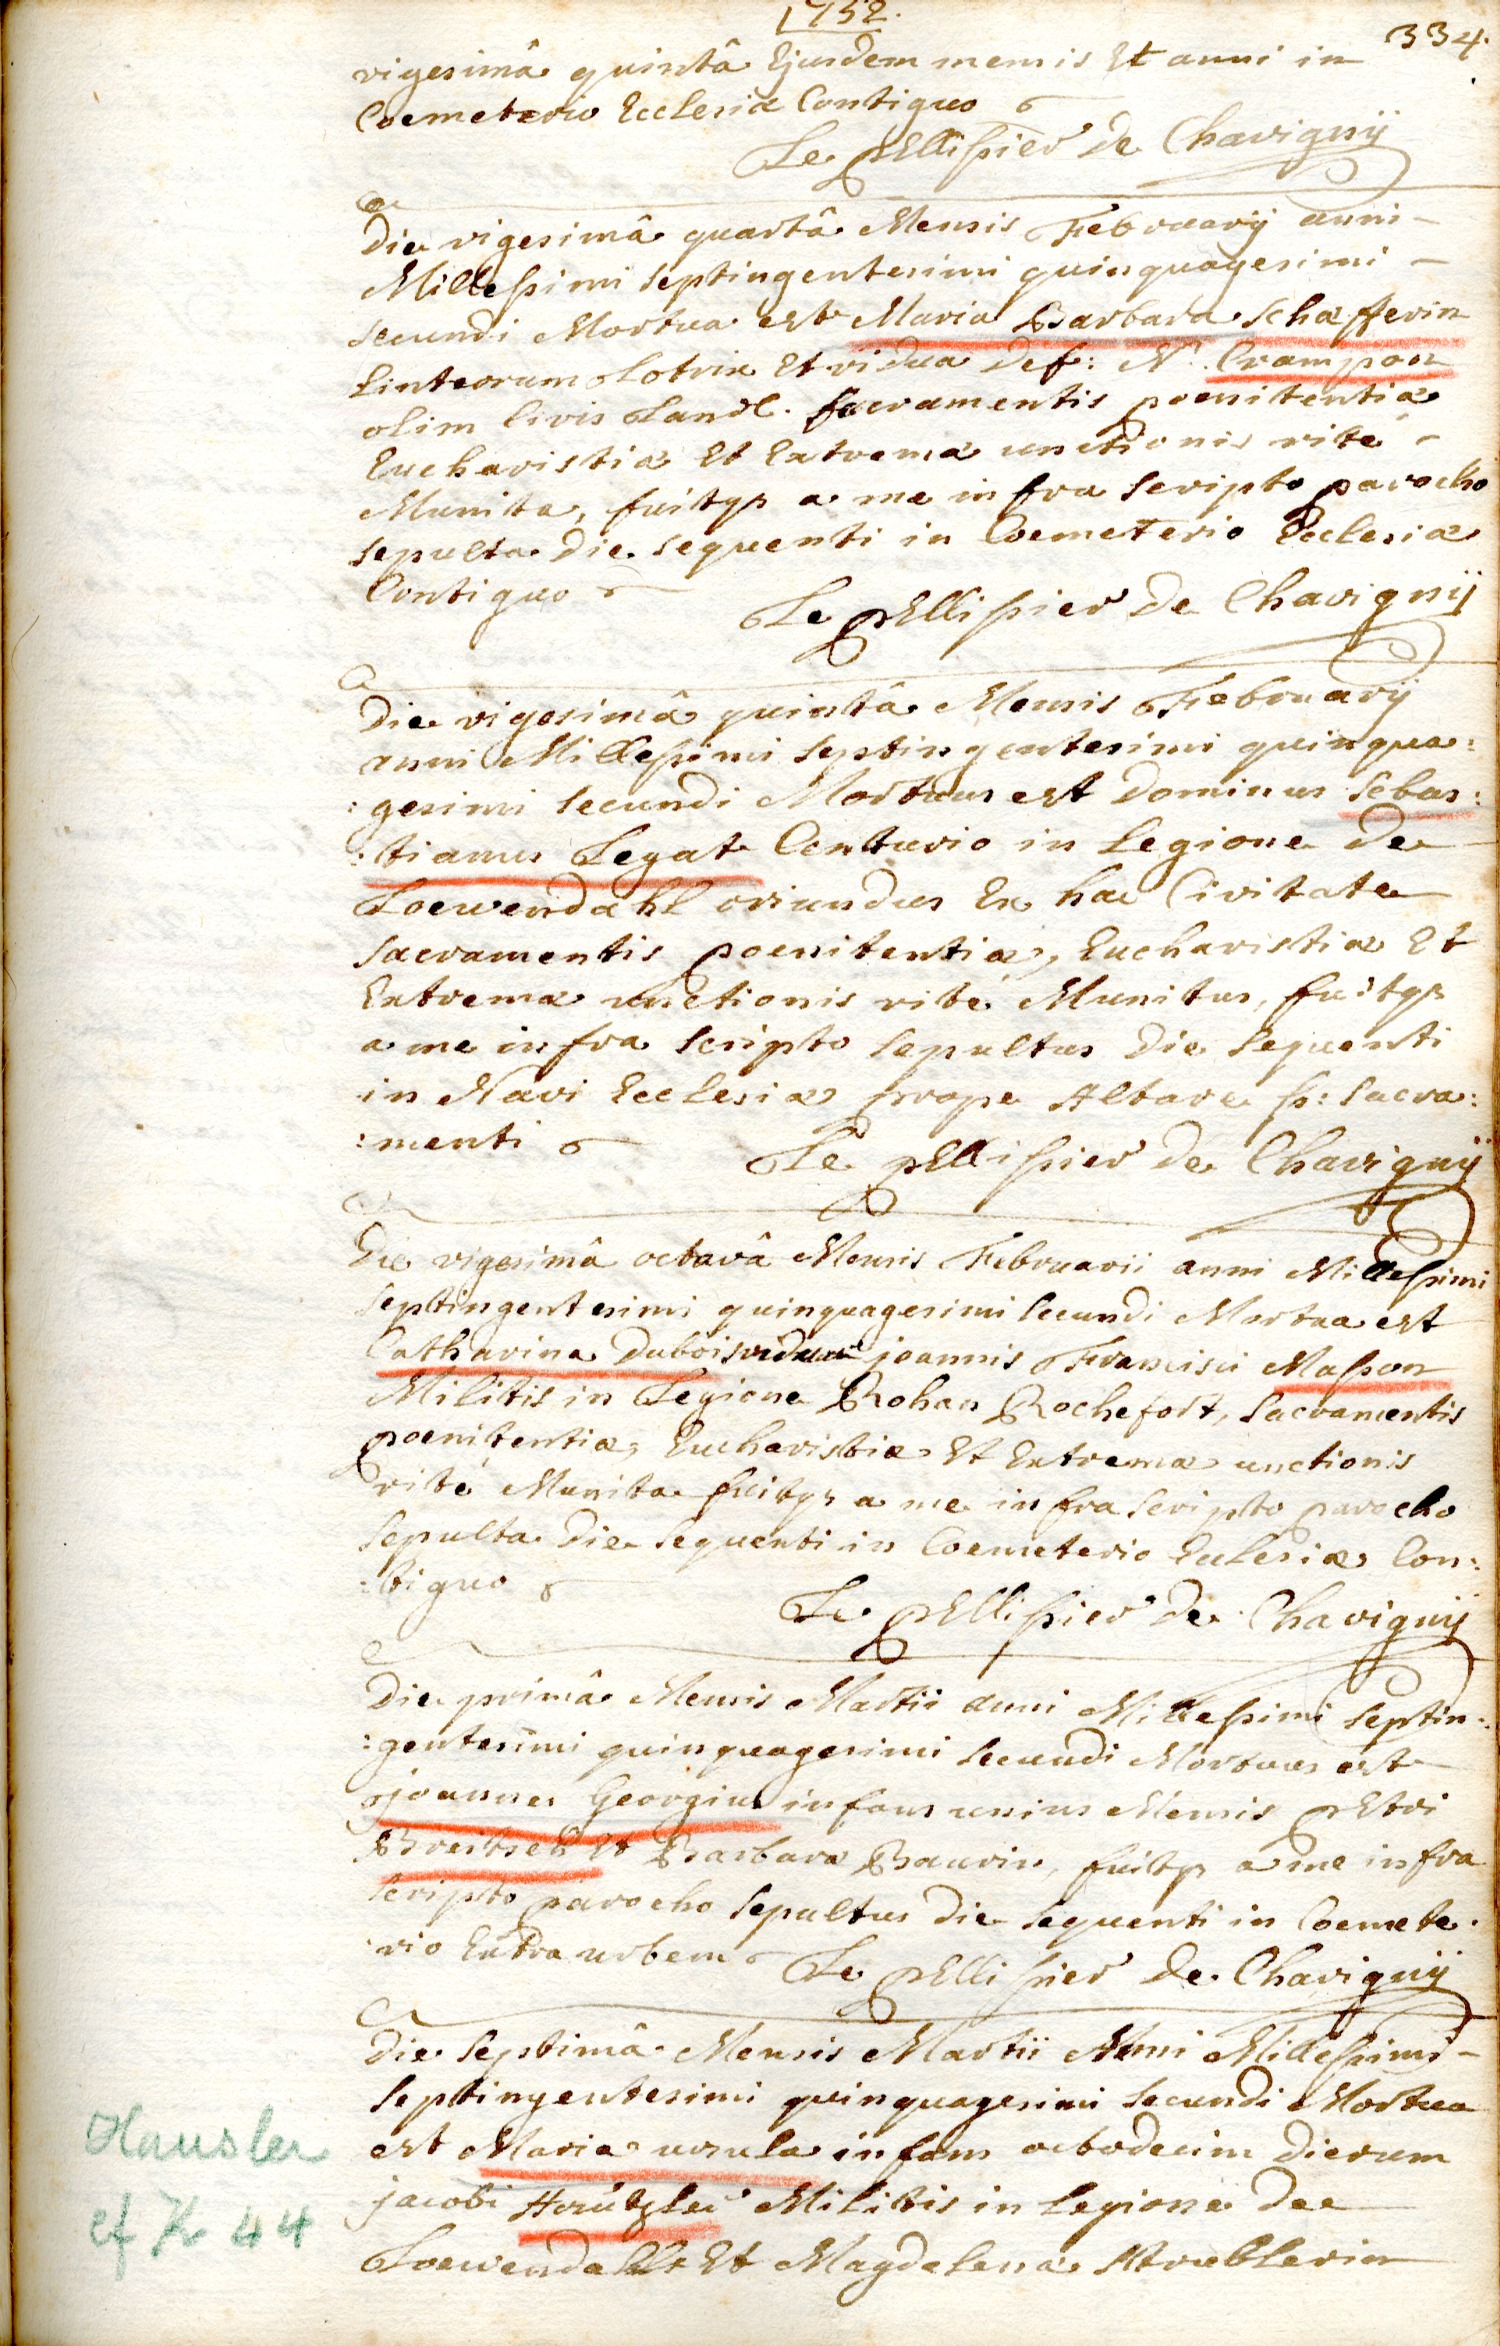 1752.
334.
vigesimâ quintâ Ejusdem mensis Et anni in
Coemeterio Ecclesiæ Contiguo
Le pEllissier de Chavignÿ
Die vigesimâ quartâ Mensis Februarÿ anni
Millessimi septingentesimi quinquagesimi
secundi Mortua est Maria Barbara Schæfferin
Linteorum Lotrix Et vidua def: N. Crampon
olim Civis Land. sacramentis poenitentiæ
Eucharistiæ Et Extremæ unctionis rité
Munita, fuitq; a me infra scripto parocho
sepulta die sequenti in Coemeterio Ecclesiæ
Contiguo
Le pEllissier de Chavignÿ
Die vigesimâ quintâ Mensis Februarÿ
anni Millessimi septingentesimi quinqua:
:gesimi secundi Mortuus est Dominus Sebas:
:tianus Legat Centurio in Legione de
Loewendahl oriundus Ex hac Civitate
sacramentis poenitentiæ, Eucharistiæ Et
Extremæ unctionis rité Munitus, fuitq;
a me infra scripto sepultus die sequenti
in Navi Ecclesiæ prope Altare ss: sacra:
:menti
Le pEllissier de Chavignÿ
Die vigesimâ octavâ Mensis Februarii anni Millessimi
septingentesimi quinquagesimi secundi Mortua est
Catharina Dubois vidua joannis Francisci Masson
Militis in Legione Rohan Rochefort, sacramentis
poenitentiæ, Eucharistiæ Et Extremæ unctionis
rité Munita fuitq; a me infra scripto parocho
sepulta die sequenti in Coemeterio Ecclesiæ Con:
:tiguo
Le pEllissier de Chavignÿ
Die primâ Mensis Martii anni Millessimi septin:
:gentesimi quinquagesimi secundi Mortuus est
joannes Georgius infans unius Mensis pEtri
Breitsch Et Barbaræ Baurin, fuitq; a me infra
scripto parocho sepultus die sequenti in Coemete:
:rio Extra urbem
Le pEllissier de Chavignÿ
Die septimâ Mensis Martii Anni Millessimi
septingentesimi quinquagesimi secundi Mortua
est Maria ursula infans octodecim dierum
jacobi Militis in Legione de
Loewendahl Et Magdalenæ
Hausler
cf K 44